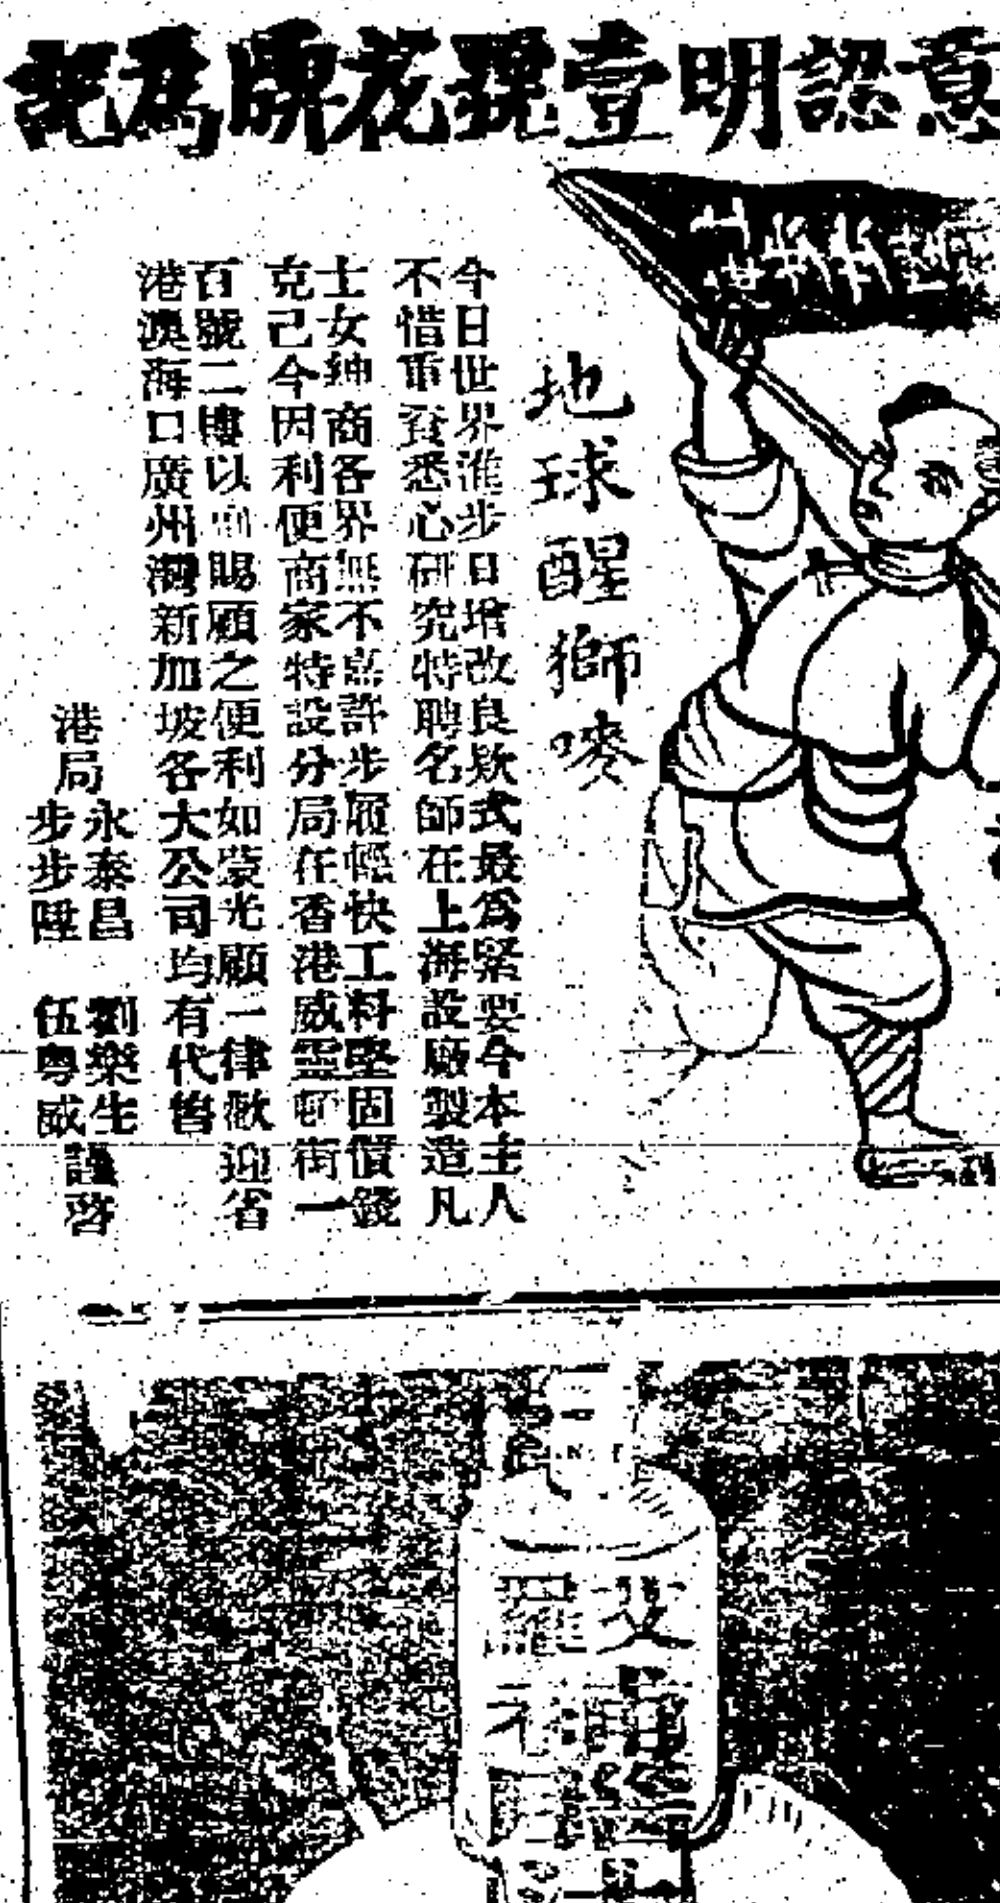 意認明壹號花牌為記
地球醒獅嘜
今日世界進步日增改良欵式最爲緊要今本主人
不惜重資悉心研究特聘名師在上海設廠製造凡
士女紳商各界無不嘉許步履輕快工料堅固價錢
克己今因利便商家特設分局在香港威靈頓街一
百號二樓以副賜顧之便利如蒙光顧一律歡迎省
港澳海口廣州灣新加坡各大公司均有代售
港局
永泰昌 劉樂生
步步陞 伍粵威
謹啓
艾
羅